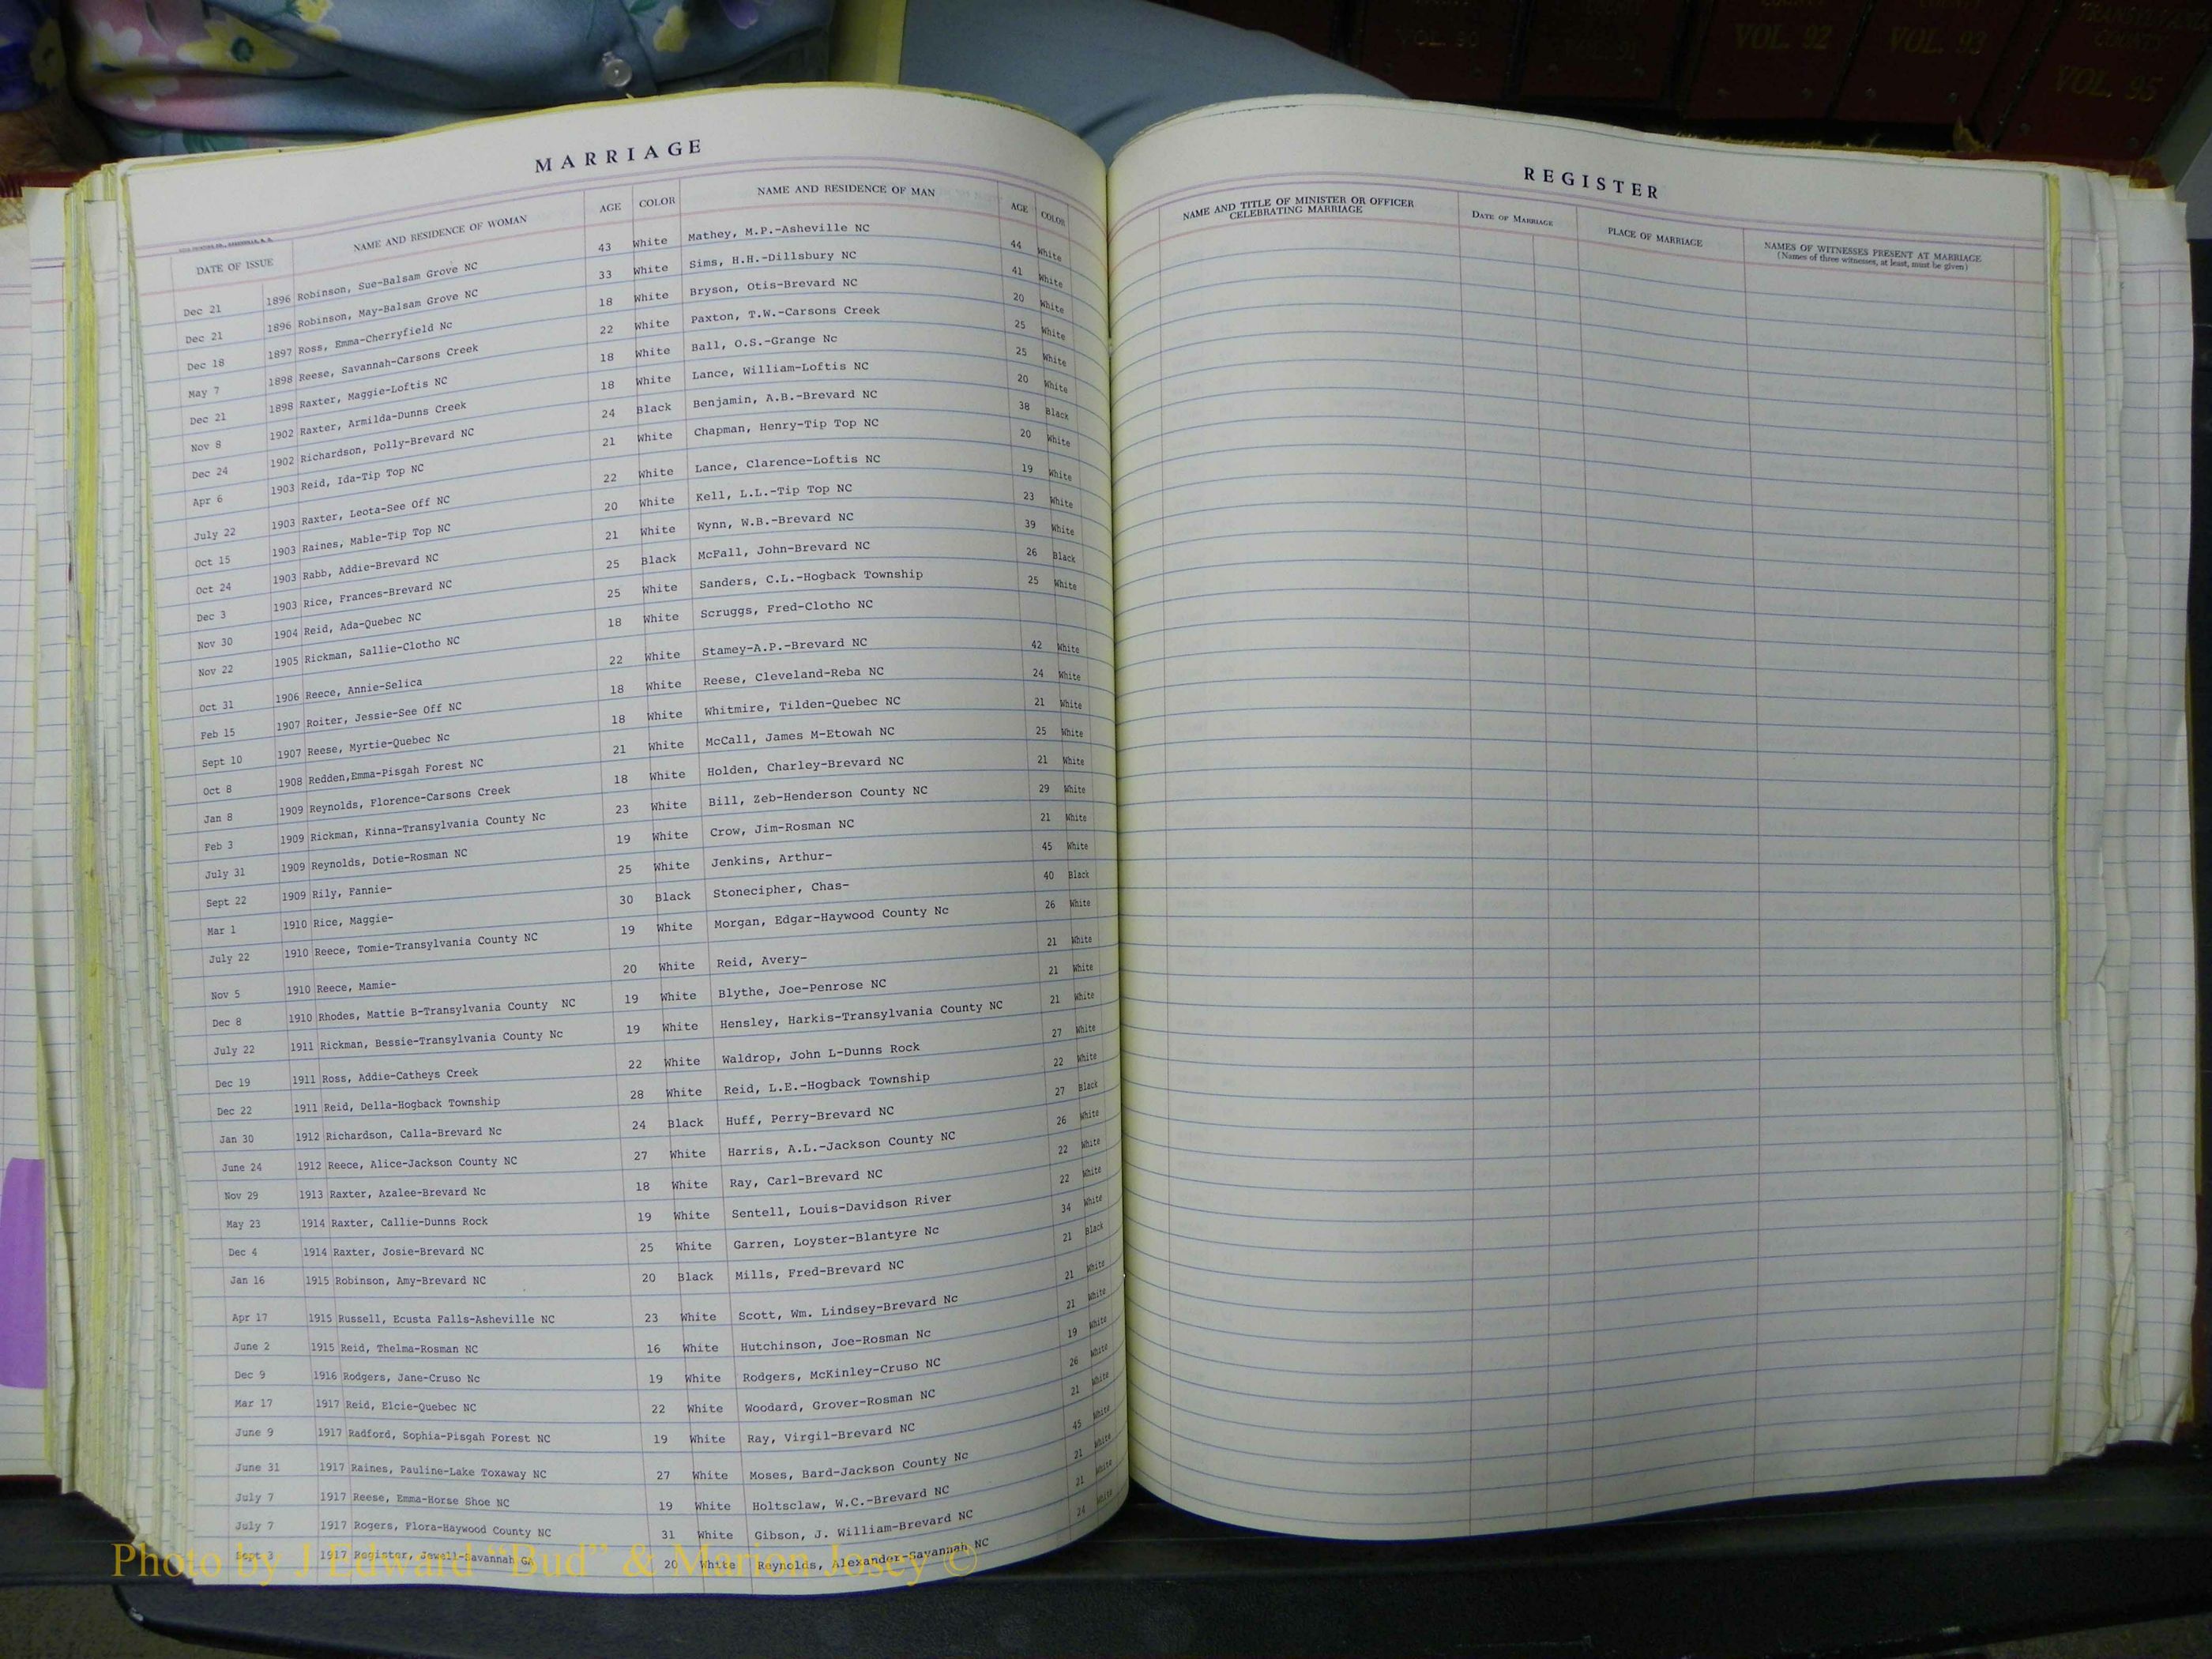 COUNTY COUNTY TRANSYLVANIA
VOL. 90 VOL. 91 VOL. 92 VOL. 93 COUNTY
VOL. 95
MARRIAGE
DATE OF ISSUE NAME AND RESIDENCE OF WOMAN AGE COLOR NAME AND RESIDENCE OF MAN AGE COLOR
Dec 21 1896 Robinson, Sue-Balsam Grove NC 43 White Mathey, M.P.-Asheville NC 44 White
Dec 21 1896 Robinson, May-Balsam Grove NC 33 White Sims, H.H.-Dillsbury NC 41 White
Dec 18 1897 Ross, Emma-Cherryfield Nc 18 White Bryson, Otis-Brevard NC 20 White
May 7 1898 Reese, Savannah-Carsons Creek 22 White Paxton, T.W.-Carsons Creek 25 White
Dec 21 1898 Raxter, Maggie-Loftis NC 18 White Ball, O.S.-Grange Nc 25 White
Nov 8 1902 Raxter, Armilda-Dunns Creek 18 White Lance, William-Loftis NC 20 White
Dec 24 1902 Richardson, Polly-Brevard NC 24 Black Benjamin, A.B.-Brevard NC 38 Black
Apr 6 1903 Reid, Ida-Tip Top NC 21 White Chapman, Henry-Tip Top NC 20 White
July 22 1903 Raxter, Leota-See Off NC 22 White Lance, Clarence-Loftis NC 19 White
Oct 15 1903 Raines, Mable-Tip Top NC 20 White Kell, L.L.-Tip Top NC 23 White
Oct 24 1903 Rabb, Addie-Brevard NC 21 White Wynn, W.B.-Brevard NC 39 White
Dec 3 1903 Rice, Frances-Brevard NC 25 Black McFall, John-Brevard NC 26 Black
Nov 30 1904 Reid, Ada-Quebec NC 25 White Sanders, C.L.-Hogback Township 25 White
Nov 22 1905 Rickman, Sallie-Clotho NC 18 White Scruggs, Fred-Clotho NC
Oct 31 1906 Reece, Annie-Selica 22 White Stamey-A.P.-Brevard NC 42 White
Feb 15 1907 Roiter, Jessie-See Off NC 18 White Reese, Cleveland-Reba NC 24 White
Sept 10 1907 Reese, Myrtie-Quebec Nc 18 White Whitmire, Tilden-Quebec NC 21 White
Oct 8 1908 Redden,Emma-Pisgah Forest NC 21 White McCall, James M-Etowah NC 25 White
Jan 8 1909 Reynolds, Florence-Carsons Creek 18 White Holden, Charley-Brevard NC 21 White
Feb 3 1909 Rickman, Kinna-Transylvania County Nc 23 White Bill, Zeb-Henderson County NC 29 White
July 31 1909 Reynolds, Dotie-Rosman NC 19 White Crow, Jim-Rosman NC 21 White
Sept 22 1909 Rily, Fannie- 25 White Jenkins, Arthur- 45 White
Mar 1 1910 Rice, Maggie- 30 Black Stonecipher, Chas- 40 Black
July 22 1910 Reece, Tomie-Transylvania County NC 19 White Morgan, Edgar-Haywood County Nc 26 White
Nov 5 1910 Reece, Mamie- 20 White Reid, Avery- 21 White
Dec 8 1910 Rhodes, Mattie B-Transylvania County NC 19 White Blythe, Joe-Penrose NC 21 White
July 22 1911 Rickman, Bessie-Transylvania County Nc 19 White Hensley, Harkis-Transylvania County NC 21 White
Dec 19 1911 Ross, Addie-Catheys Creek 22 White Waldrop, John L-Dunns Rock 27 White
Dec 22 1911 Reid, Della-Hogback Township 28 White Reid, L.E.-Hogback Township 22 White
Jan 30 1912 Richardson, Calla-Brevard Nc 24 Black Huff, Perry-Brevard NC 27 Black
June 24 1912 Reece, Alice-Jackson County NC 27 White Harris, A.L.-Jackson County NC 26 White
Nov 29 1913 Raxter, Azalee-Brevard Nc 18 White Ray, Carl-Brevard NC 22 White
May 23 1914 Raxter, Callie-Dunns Rock 19 White Sentell, Louis-Davidson River 22 White
Dec 4 1914 Raxter, Josie-Brevard NC 25 White Garren, Loyster-Blantyre Nc 34 White
Jan 16 1915 Robinson, Amy-Brevard NC 20 Black Mills, Fred-Brevard NC 21 Black
Apr 17 1915 Russell, Ecusta Falls-Asheville NC 23 White Scott, Wm. Lindsey-Brevard Nc 21 White
June 2 1915 Reid, Thelma-Rosman NC 16 White Hutchinson, Joe-Rosman Nc 21 White
Dec 9 1916 Rodgers, Jane-Cruso Nc 19 White Rodgers, McKinley-Cruso NC 19 White
Mar 17 1917 Reid, Elcie-Quebec NC 22 White Woodard, Grover-Rosman NC 26 White
June 9 1917 Radford, Sophia-Pisgah Forest NC 19 White Ray, Virgil-Brevard NC 21 White
June 31 1917 Raines, Pauline-Lake Toxaway NC 27 White Moses, Bard-Jackson County Nc 45 White
July 7 1917 Reese, Emma-Horse Shoe NC 19 White Holtsclaw, W.C.-Brevard NC 21 White
July 7 1917 Rogers, Flora-Haywood County NC 31 White Gibson, J. William-Brevard NC 21 White
Sept 3 1917 Register, Jewell-Savannah GA 20 White Reynolds, Alexander-Savannah NC 24 White
REGISTER
NAME AND TITLE OF MINISTER OR OFFICER CELEBRATING MARRIAGE DATE OF MARRIAGE PLACE OF MARRIAGE NAMES OF WITNESSES PRESENT AT MARRIAGE
(Names of three witnesses, at least, must be given)
Photo by J Edward "Bud" & Marion Josey ©